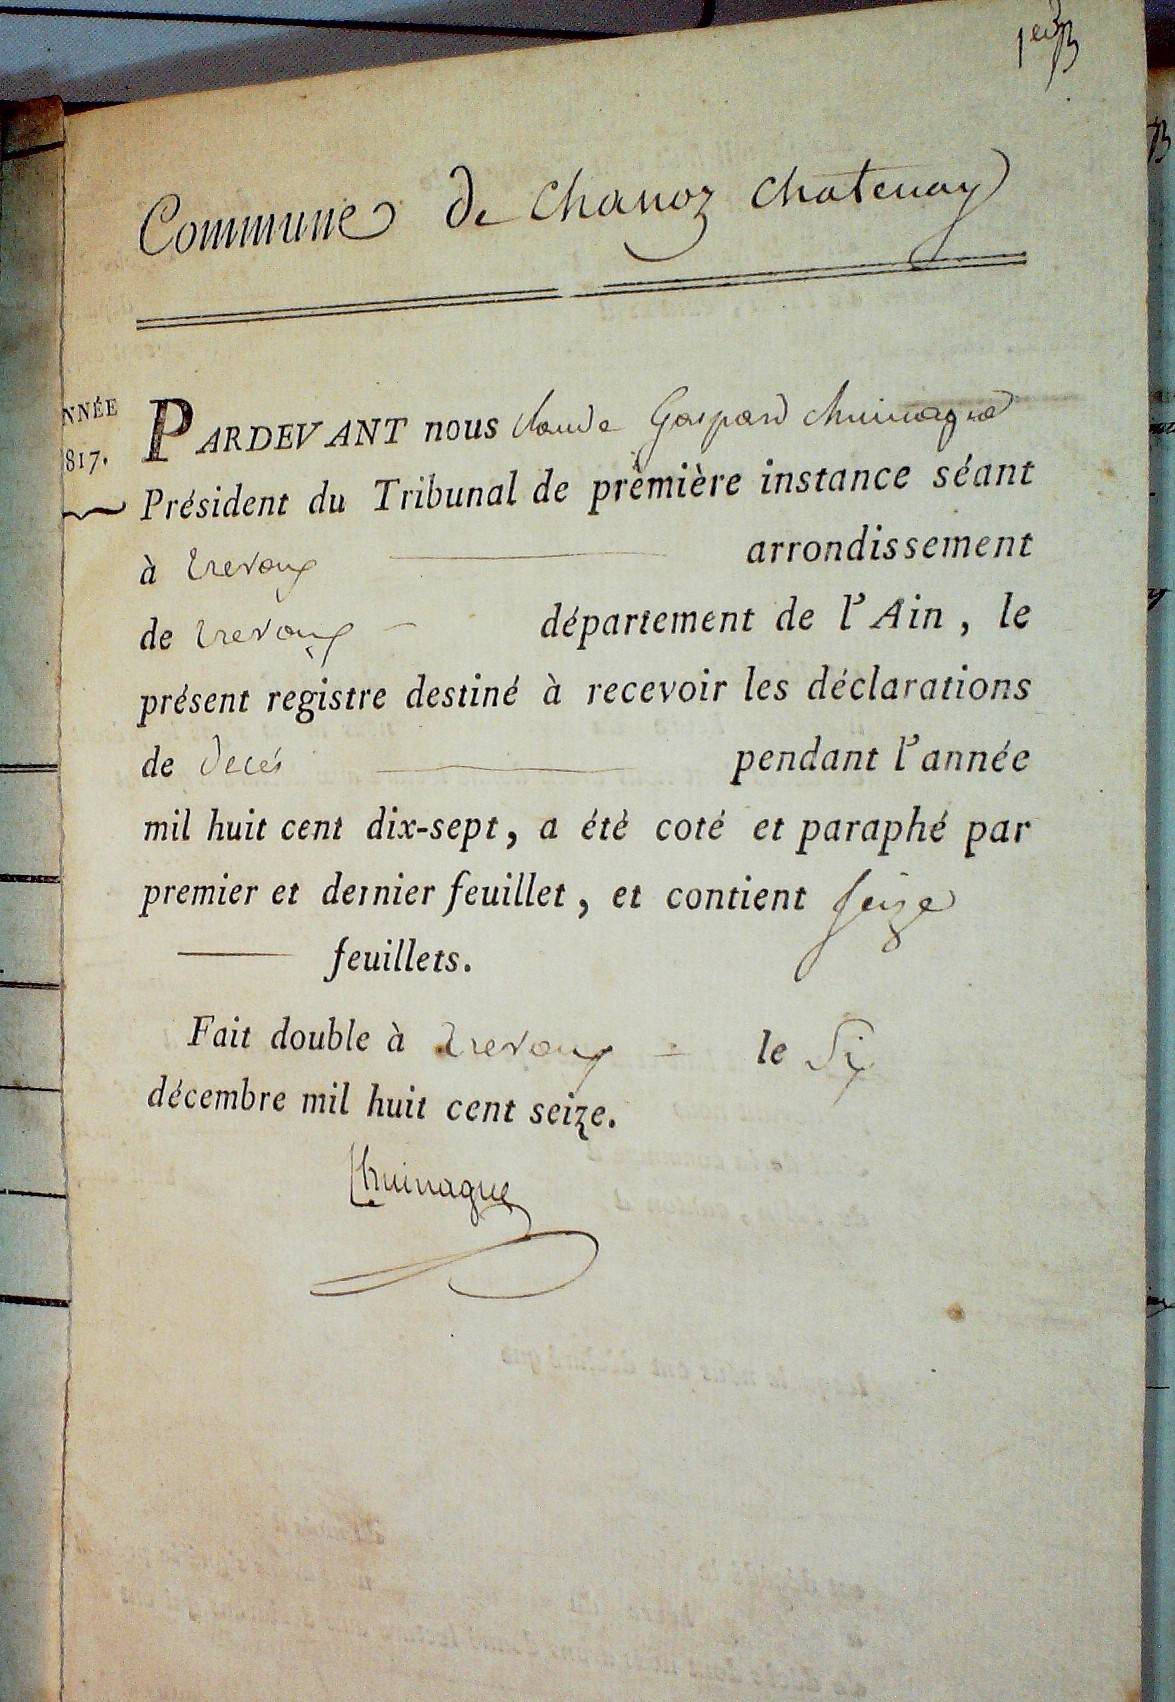 1er
Commune de Chanoz Chatenay
NNÉE
817.
PARDEVANT nous Claude Gaspard Chuinague
Président du Tribunal de prèmière instance séant
à trevoux arrondissement
de trevoux département de l'Ain, le
présent registre destiné à recevoir les déclarations
de decés pendant l'année
mil huit cent dix-sept, a étè coté et paraphé par
premier et dernier feuillet, et contient seize
feuillets.
Fait double à trevoux le Six
décembre mil huit cent seize.
Chuinague